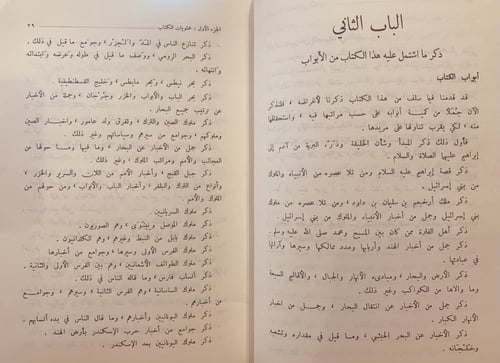 الباب الثاني
ذكر ما اشتمل عليه هذا الكتاب من الأبواب
أبواب الكتاب
قد قدمنا فيما سلف من هذا الكتاب ذكرنا لأغراضه ، فلنذكر
الآن جُمَلا من كمية أبوابه على حسب مراتبها فيه ، واستحقاقها
منه ، لكي يقرب تناولها على مريدها .
فأول ذلك ذكر المبدأ وشأن الخليقة وذَرْء البرية من آدم إلى
إبراهيم عليهما الصلاة والسلام .
ذكر قصة إبراهيم عليه السلام ومن تلا عصره من الأنبياء والملوك
من بني إسرائيل .
ذكر ملك أرخبعم بن سليمان بن داود ، ومن تلا عصره من ملوك
بني إسرائيل وجمل من أخبار الأنبياء والملوك من بني إسرائيل .
ذكر أهل الفترة ممن كان بين المسيح ومحمد صلى الله عليه وسلم .
ذكر جمل من أخبار الهند وأربابها ومدد ممالكها وسيرها وآرائها
في عبادتها .
ذكر الأرض والبحار ، ومبادىء الأنهار والجبال ، والأقاليم السبعة
وما والاها من الكواكب وغير ذلك .
ذكر جمل من الأخبار عن انتقال البحار ، وجمل من اخبار
الأنهار الكبار .
ذكر الأخبار عن البحر الحبشي ، وما قيل في مقداره وتشعبه
وخلجانه .
الجزء الأول : محتويات الكتاب ٢٩
ذكر تنازع الناس في المد والجزر ، وجوامع ما قيل في ذلك .
ذكر البحر الرومي ، ووصف ما قيل في طوله وعرضه وابتدائه
وانتهائه .
ذكر بحر نيطس ، وبحر مابطس ، وخليج القسطنطينية .
ذكر بحر الباب والأبواب والخزر وجرجان ، وجملة من الأخبار
عن ترتيب جميع البحار .
ذكر ملوك الصين والترك ، وتفرق ولد عامور ، واخبار الصين
وملوكهم ، وجوامع من سيرهم وسياساتهم وغير ذلك .
ذكر جمل من الأخبار عن البحار ، وما فيها وما حولها من
العجائب والأمم ومراتب الملوك ، وغير ذلك .
ذكر جبل القبج ، وأخبار الأمم من اللان والسرير والخزر ،
وأنواع من الترك والبلغر ، وأخبار الباب والأبواب ، ومن حولهم من
الملوك والأمم .
ذكر ملوك السريانيين
ذكر ملوك الموصل ونينوى ، وهم الصوريون .
ذكر ملوك بابل من النبط وغيرهم ، وهم الكلدانيون .
ذكر ملوك الفرس الأولى وسيرها ، وجوامع من أخبارها
ذكر ملوك الطوائف الأشعانيين ، وهم بين الفرس الأولى والثانية .
ذكر أنساب فارس ، وما قاله الناس في ذلك .
ذكر ملوك الساسانية ، وهم الفرس الثانية ، وسيرهم ، وجوامع
من أخبارهم .
ذكر ملوك اليونانيين وأخبارهم ، وما قال الناس في بدء أنسابهم .
ذكر جوامع من أخبار حرب الإسكندر بأرض الهند .
ذكر ملوك اليونانيين بعد الإسكندر .